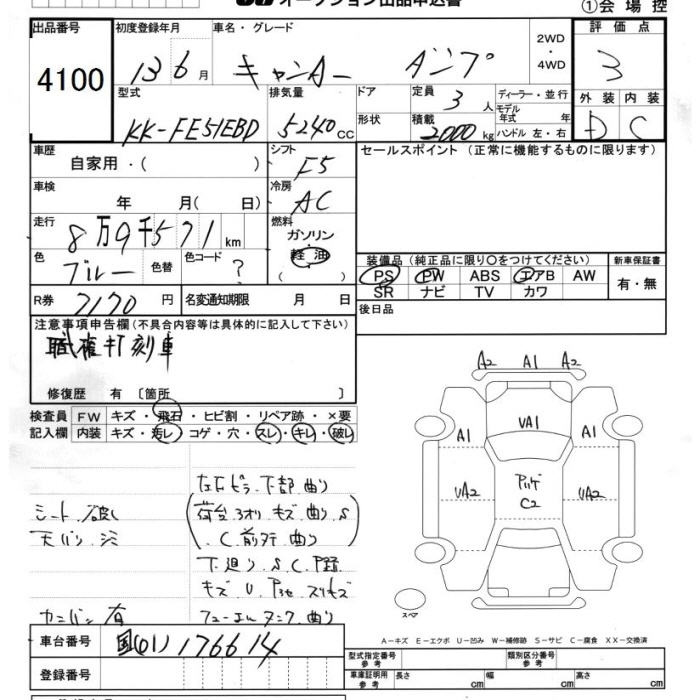 オークション出品申込書
①会場控
出品番号 初度登録年月 車名・グレード 2WD・4WD 評価点
4100 13 6月 キャンター ダンプ 3
型式 排気量 ドア 定員 3人 ディーラー・並行 外装 内装
KK-FE51EBD 5240cc 形状 積載 2000kg モデル年式 年 ハンドル 左・右 D C
車歴 自家用・( ) シフト F5 セールスポイント (正常に機能するものに限ります)
車検 年 月( 日) 冷房 AC
走行 8万9千571km 燃料 ガソリン
色 ブルー 色替 色コード ? 軽油 ( )
装備品 (純正品に限り○をつけてください) 新車保証書
PS PW ABS エアB AW 有・無
SR ナビ TV カワ
R券 7170円 名変通知期限 月 日 後日品
注意事項申告欄(不具合内容等は具体的に記入して下さい)
職権打刻車
修復歴 有 〔箇所 〕
検査員 FW キズ・飛石・ヒビ割・リペア跡・×要
記入欄 内装 キズ・汚レ・コゲ・穴・スレ・キレ・破レ
A2 A1 A2
A1 VA1 A1
UA2 C2 UA2
左右ピラー下部曲り
シート破レ (荷台3オリキズ曲りS
天バリシミ
下廻りS.C
カンバン有 フューエルタンク曲り
スペア
A-キズ E-エクボ U-凹み W-補修跡 S-サビ C-腐食 XX-交換済
車台番号 国(01)176614
登録番号
型式指定番号 参考 類別区分番号 参考
車庫証明用 参考 長さ cm 幅 cm 高さ cm